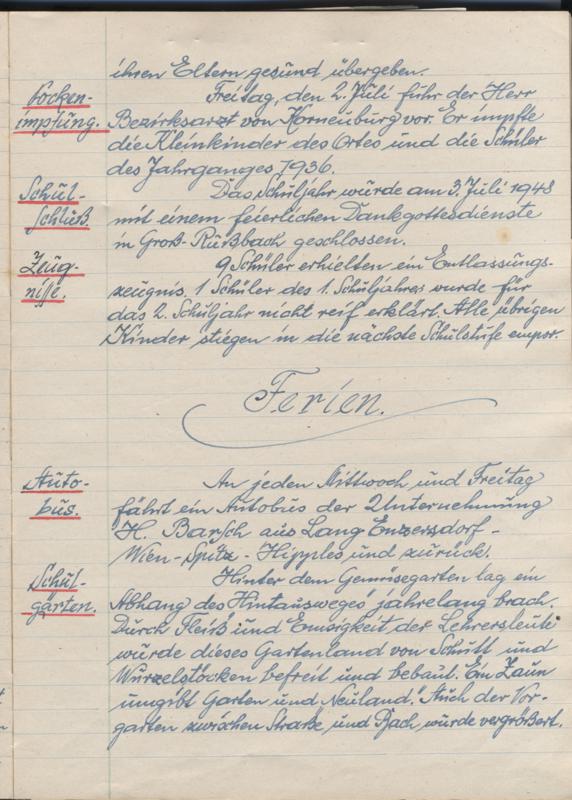 ihren Eltern gesund übergeben.
Pocken-
impfung.
Freitag, den 2. Juli fuhr der Herr
Bezirksarzt von Korneuburg vor. Er impfte
die Kleinkinder des Ortes und die Schüler
des Jahrganges 1936.
Schul-
schluß
Das Schuljahr wurde am 3. Juli 1948
mit einem feierlichen Dankgottesdienste
in Groß-Rußbach geschlossen.
Zeug-
nisse.
9 Schüler erhielten ein Entlassungs-
zeugnis. 1 Schüler des 1. Schuljahres wurde für
das 2. Schuljahr nicht reif erklärt. Alle übrigen
Kinder stiegen in die nächste Schulstufe empor.
Ferien.
Auto-
bus.
An jeden Mittwoch und Freitag
fährt ein Autobus der Unternehmung
H. Barsch aus Lang Enzersdorf-
Wien-Spitz-Hipples und zurück.
Schul-
garten.
Hinter dem Gemüsegarten lag ein
Abhang des "Hintausweges" jahrelang brach.
Durch Fleiß und Emsigkeit der Lehrersleute
wurde dieses Gartenland von Schutt und
Wurzelstöcken befreit und bebaut. Ein Zaun
umgibt Garten und "Neuland". Auch der Vor-
garten zwischen Straße und Bach wurde vergrößert.